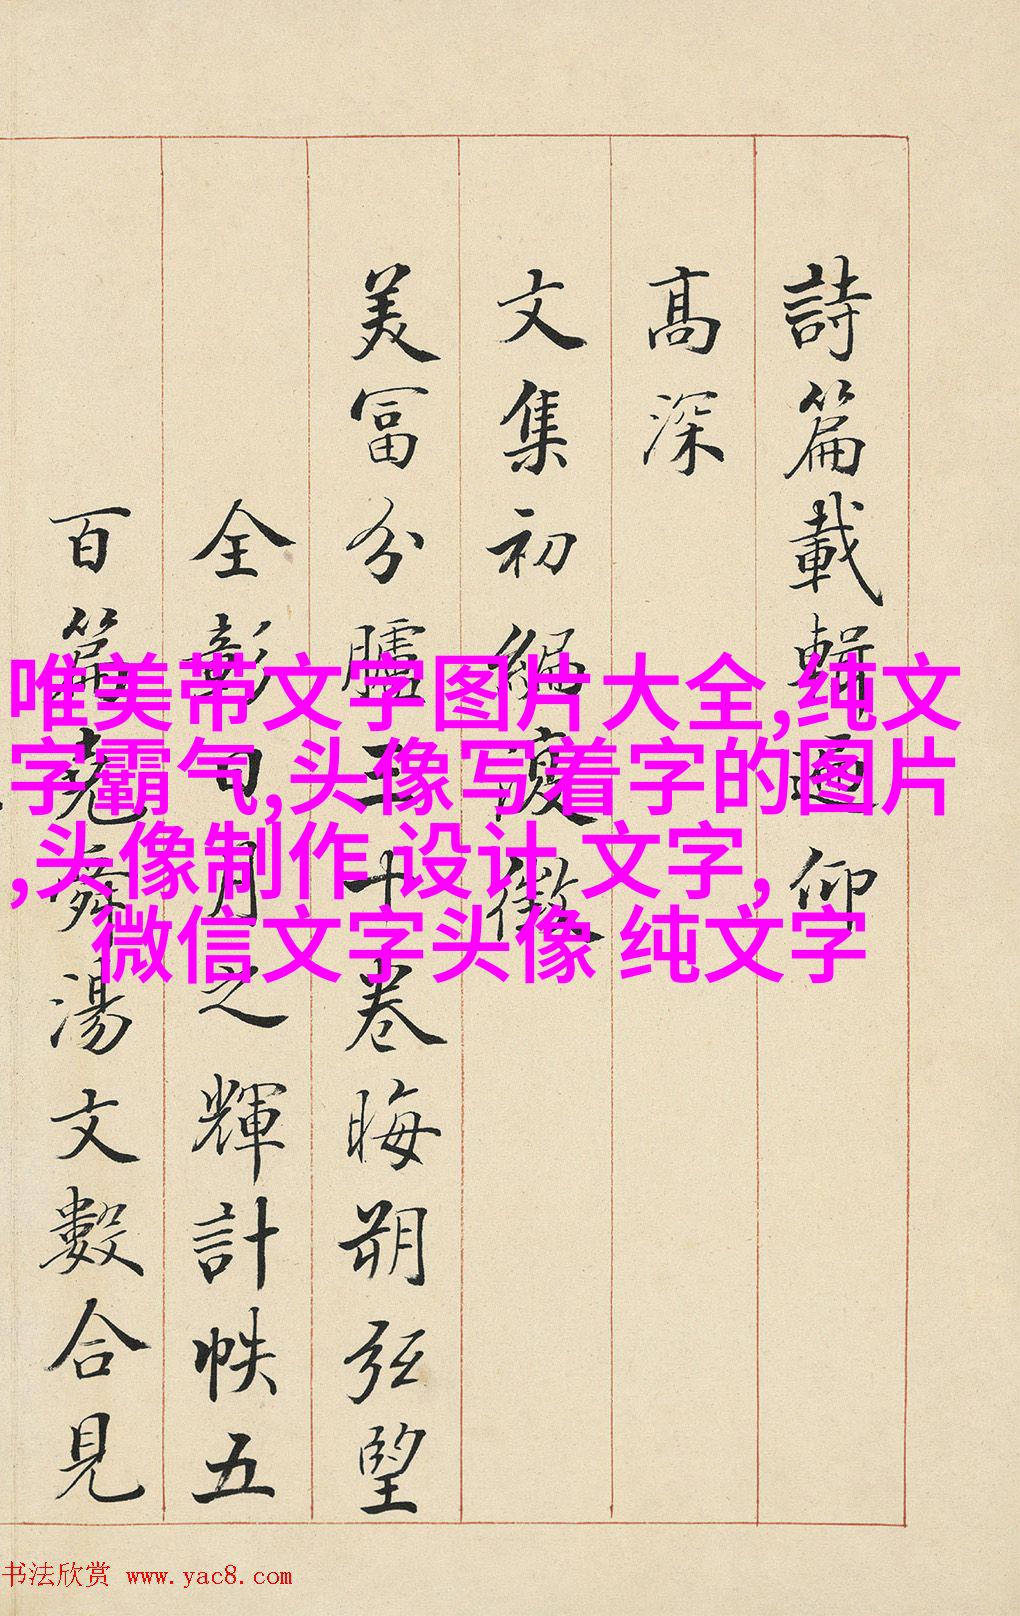 詩篇載輯迺仰
高深
文集初編復徵
美富分臚五十卷晦朔弦望
全彰日月之輝計帙五
百篇堯舜湯文數合見
唯美带文字图片大全,纯文
字霸气,头像写着字的图片
,头像制作 设计 文字,
微信文字头像 纯文字
书法欣赏 www.yac8.com